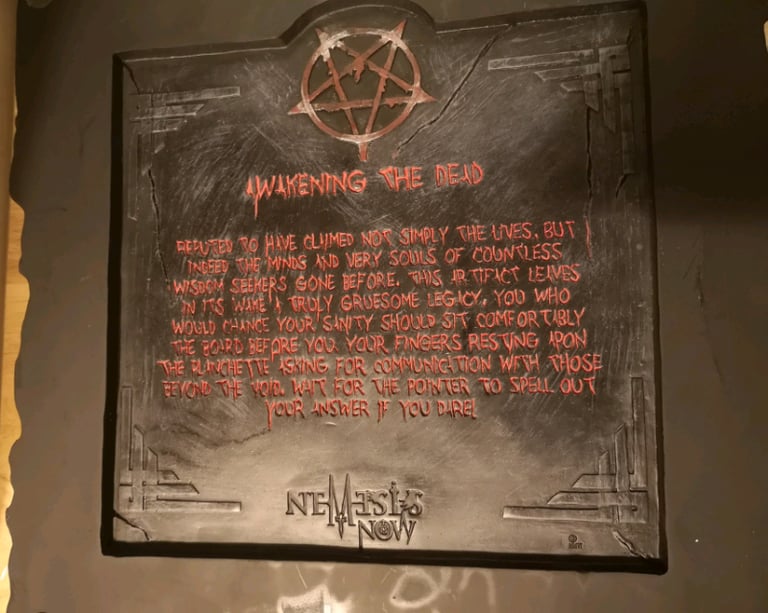 AWAKENING THE DEAD
REPUTED TO HAVE CLAIMED NOT SIMPLY THE LIVES, BUT
INDEED THE MINDS AND VERY SOULS OF COUNTLESS
WISDOM SEEKERS GONE BEFORE. THIS ARTIFACT LEAVES
IN ITS WAKE A TRULY GRUESOME LEGACY. YOU WHO
WOULD CHANCE YOUR SANITY SHOULD SIT COMFORTABLY
THE BOARD BEFORE YOU, YOUR FINGERS RESTING APON
THE PLANCHETTE ASKING FOR COMMUNICATION WITH THOSE
BEYOND THE VOID. WAIT FOR THE POINTER TO SPELL OUT
YOUR ANSWER IF YOU DARE!
NEMESIS
NOW